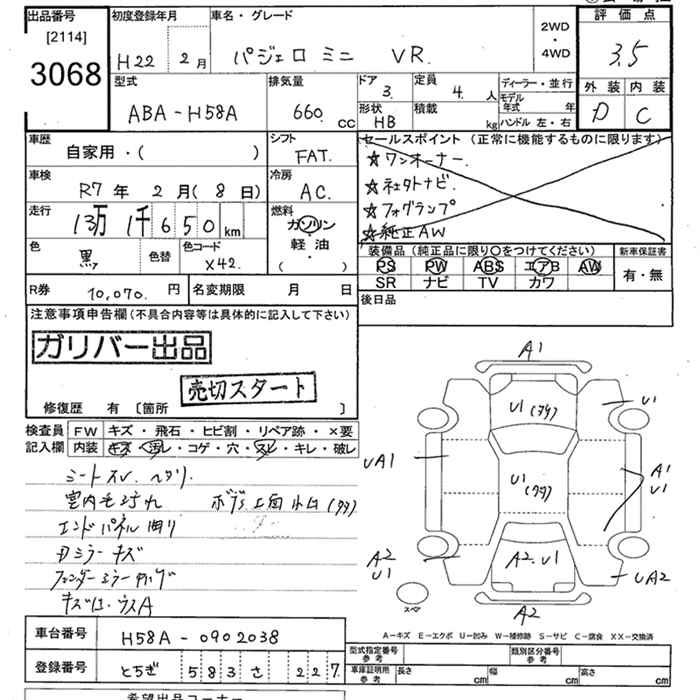 出品番号 初度登録年月 車名・グレード 2WD・4WD 評価点
[2114]
3068 H22 2月 パジェロ ミニ VR. 3.5
型式 排気量 ドア 定員 ディーラー・並行 外装 内装
ABA-H58A 660. cc 3. 4. 人 モデル年式 年 D C
形状 積載 ハンドル 左・右
HB kg
車歴 シフト セールスポイント (正常に機能するものに限ります)
自家用・( ) FAT. ☆ワンオーナー.
車検 冷房 ☆社外ナビ.
R7年 2月(8日) AC. ☆フォグランプ
走行 燃料 ☆純正AW
13万1千650km ガソリン
軽油
( )
色 色替 色コード 装備品(純正品に限り○をつけてください) 新車保証書
黒 X42. PS PW ABS エアB AW 有・無
SR ナビ TV カワ
R券 10,070. 円 名変期限 月 日 後日品
注意事項申告欄(不具合内容等は具体的に記入して下さい)
ガリバー出品
売切スタート
修復歴 有 [箇所 ]
検査員記入欄 FW キズ・飛石・ヒビ割・リペア跡・×要
内装 キズ・汚レ・コゲ・穴・スレ・キレ・破レ
シートスレ. ヘタリ.
室内毛汚れ
エンドパネル曲り
Dミラーキズ
A1
U1(タタ) U1
UA1 U1(タタ) A1 U1
A2 U1 A2.U1 UA2
スペア A2
A-キズ E-エクボ U-凹み W-補修跡 S-サビ C-腐食 XX-交換済
車台番号 H58A-0902038
型式指定番号 参考 類別区分番号 参考
登録番号 とちぎ 583 さ 227
車庫証明用 参考 長さ cm 幅 cm 高さ cm
希望出品コーナー